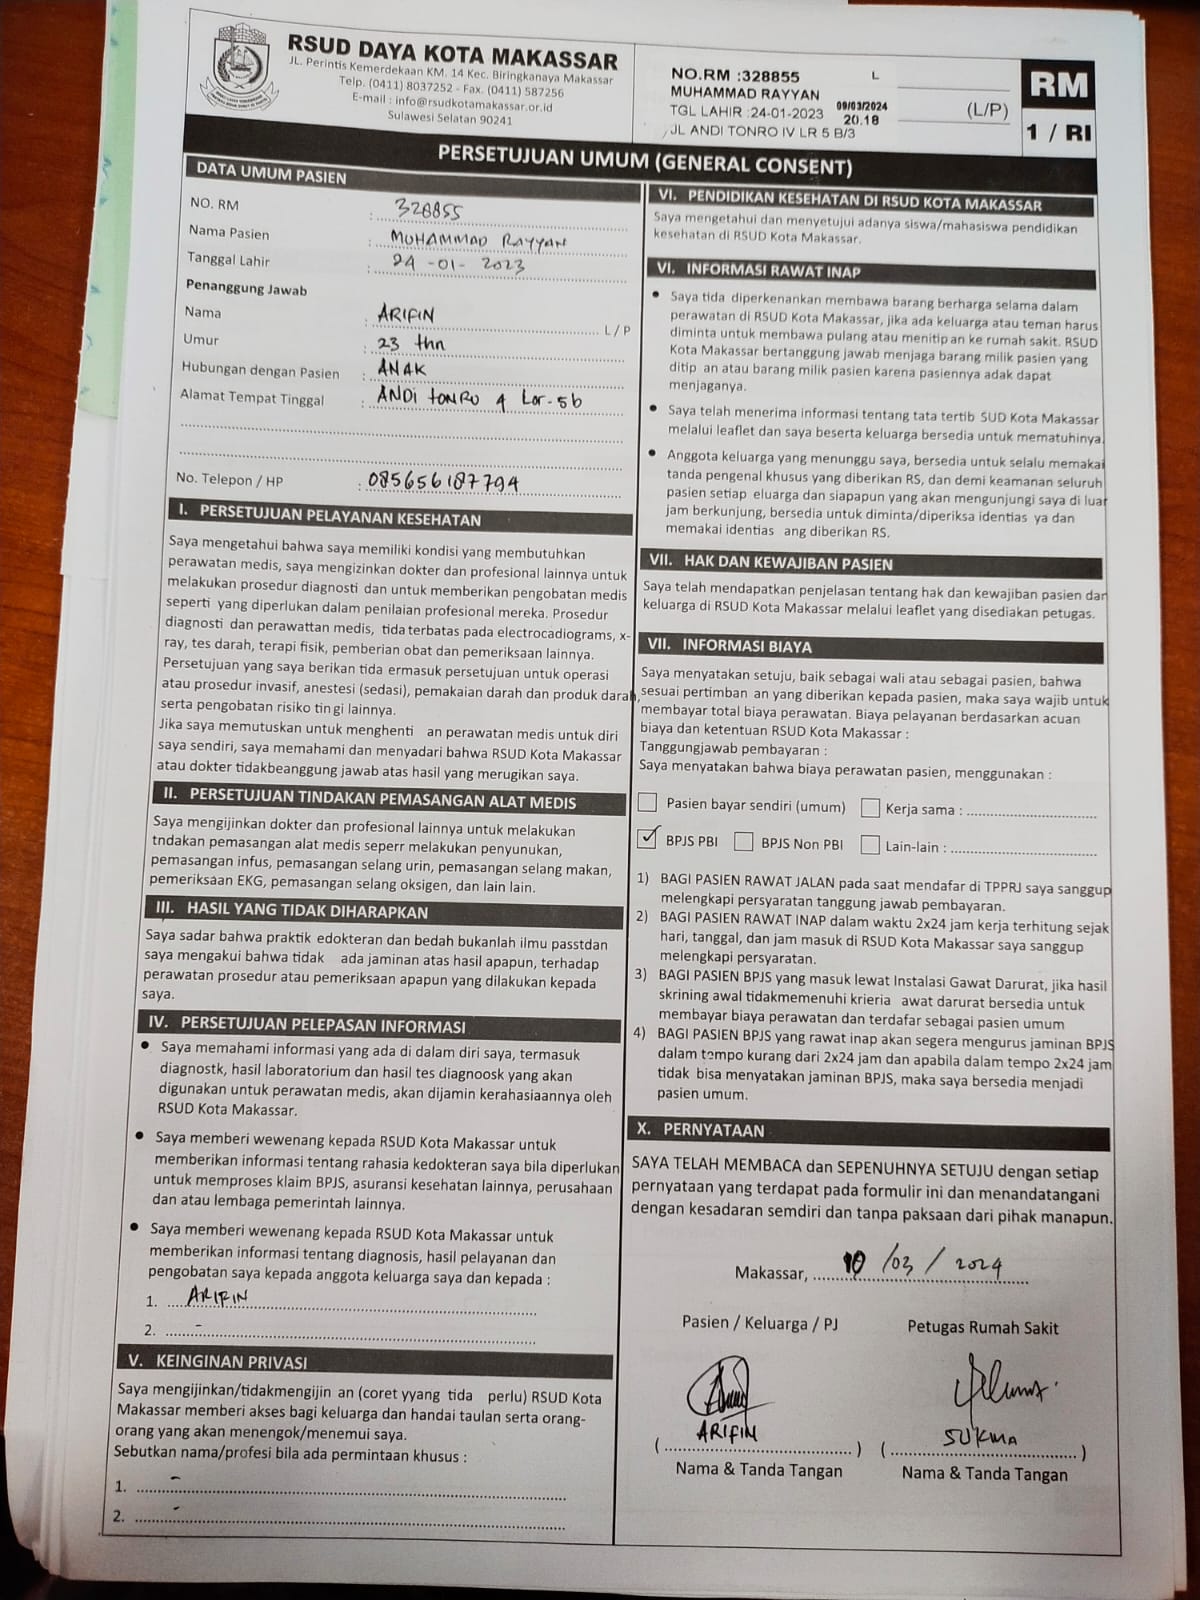 RSUD DAYA KOTA MAKASSAR
JL. Perintis Kemerdekaan KM. 14 Kec. Biringkanaya Makassar
Telp. (0411) 8037252 - Fax. (0411) 587256
E-mail : info@rsudkotamakassar.or.id
Sulawesi Selatan 90241
NO.RM :328855 L
MUHAMMAD RAYYAN
TGL LAHIR :24-01-2023 09/03/2024 20.18 (L/P)
JL ANDI TONRO IV LR 5 B/3
RM
1 / RI
PERSETUJUAN UMUM (GENERAL CONSENT)
DATA UMUM PASIEN
NO. RM : 328855
Nama Pasien : MUHAMMAD RAYYAN
Tanggal Lahir : 24 -01- 2023
Penanggung Jawab
Nama : ARIFIN L / P
Umur : 23 thn
Hubungan dengan Pasien : ANAK
Alamat Tempat Tinggal : ANDi tONRO 4 Lor-5b
No. Telepon / HP : 085656187794
I. PERSETUJUAN PELAYANAN KESEHATAN
Saya mengetahui bahwa saya memiliki kondisi yang membutuhkan
perawatan medis, saya mengizinkan dokter dan profesional lainnya untuk
melakukan prosedur diagnosti dan untuk memberikan pengobatan medis
seperti yang diperlukan dalam penilaian profesional mereka. Prosedur
diagnosti dan perawattan medis, tida terbatas pada electrocadiograms, x-
ray, tes darah, terapi fisik, pemberian obat dan pemeriksaan lainnya.
Persetujuan yang saya berikan tida ermasuk persetujuan untuk operasi
atau prosedur invasif, anestesi (sedasi), pemakaian darah dan produk darah,
serta pengobatan risiko tin gi lainnya.
Jika saya memutuskan untuk menghenti an perawatan medis untuk diri
saya sendiri, saya memahami dan menyadari bahwa RSUD Kota Makassar
atau dokter tidakbeanggung jawab atas hasil yang merugikan saya.
II. PERSETUJUAN TINDAKAN PEMASANGAN ALAT MEDIS
Saya mengijinkan dokter dan profesional lainnya untuk melakukan
tndakan pemasangan alat medis seperr melakukan penyunukan,
pemasangan infus, pemasangan selang urin, pemasangan selang makan,
pemeriksaan EKG, pemasangan selang oksigen, dan lain lain.
III. HASIL YANG TIDAK DIHARAPKAN
Saya sadar bahwa praktik edokteran dan bedah bukanlah ilmu passtdan
saya mengakui bahwa tidak ada jaminan atas hasil apapun, terhadap
perawatan prosedur atau pemeriksaan apapun yang dilakukan kepada
saya.
IV. PERSETUJUAN PELEPASAN INFORMASI
• Saya memahami informasi yang ada di dalam diri saya, termasuk
diagnostk, hasil laboratorium dan hasil tes diagnoosk yang akan
digunakan untuk perawatan medis, akan dijamin kerahasiaannya oleh
RSUD Kota Makassar.
• Saya memberi wewenang kepada RSUD Kota Makassar untuk
memberikan informasi tentang rahasia kedokteran saya bila diperlukan
untuk memproses klaim BPJS, asuransi kesehatan lainnya, perusahaan
dan atau lembaga pemerintah lainnya.
• Saya memberi wewenang kepada RSUD Kota Makassar untuk
memberikan informasi tentang diagnosis, hasil pelayanan dan
pengobatan saya kepada anggota keluarga saya dan kepada :
1. ARIFIN
2. -
V. KEINGINAN PRIVASI
Saya mengijinkan/tidakmengijin an (coret yyang tida perlu) RSUD Kota
Makassar memberi akses bagi keluarga dan handai taulan serta orang-
orang yang akan menengok/menemui saya.
Sebutkan nama/profesi bila ada permintaan khusus :
1. -
2. -
VI. PENDIDIKAN KESEHATAN DI RSUD KOTA MAKASSAR
Saya mengetahui dan menyetujui adanya siswa/mahasiswa pendidikan
kesehatan di RSUD Kota Makassar.
VI. INFORMASI RAWAT INAP
• Saya tida diperkenankan membawa barang berharga selama dalam
perawatan di RSUD Kota Makassar, jika ada keluarga atau teman harus
diminta untuk membawa pulang atau menitip an ke rumah sakit. RSUD
Kota Makassar bertanggung jawab menjaga barang milik pasien yang
ditip an atau barang milik pasien karena pasiennya adak dapat
menjaganya.
• Saya telah menerima informasi tentang tata tertib SUD Kota Makassar
melalui leaflet dan saya beserta keluarga bersedia untuk mematuhinya.
• Anggota keluarga yang menunggu saya, bersedia untuk selalu memakai
tanda pengenal khusus yang diberikan RS, dan demi keamanan seluruh
pasien setiap eluarga dan siapapun yang akan mengunjungi saya di luar
jam berkunjung, bersedia untuk diminta/diperiksa identias ya dan
memakai identias ang diberikan RS.
VII. HAK DAN KEWAJIBAN PASIEN
Saya telah mendapatkan penjelasan tentang hak dan kewajiban pasien dan
keluarga di RSUD Kota Makassar melalui leaflet yang disediakan petugas.
VII. INFORMASI BIAYA
Saya menyatakan setuju, baik sebagai wali atau sebagai pasien, bahwa
sesuai pertimban an yang diberikan kepada pasien, maka saya wajib untuk
membayar total biaya perawatan. Biaya pelayanan berdasarkan acuan
biaya dan ketentuan RSUD Kota Makassar :
Tanggungjawab pembayaran :
Saya menyatakan bahwa biaya perawatan pasien, menggunakan :
Pasien bayar sendiri (umum) Kerja sama :
✓ BPJS PBI BPJS Non PBI Lain-lain :
1) BAGI PASIEN RAWAT JALAN pada saat mendafar di TPPRJ saya sanggup
melengkapi persyaratan tanggung jawab pembayaran.
2) BAGI PASIEN RAWAT INAP dalam waktu 2x24 jam kerja terhitung sejak
hari, tanggal, dan jam masuk di RSUD Kota Makassar saya sanggup
melengkapi persyaratan.
3) BAGI PASIEN BPJS yang masuk lewat Instalasi Gawat Darurat, jika hasil
skrining awal tidakmemenuhi krieria awat darurat bersedia untuk
membayar biaya perawatan dan terdafar sebagai pasien umum
4) BAGI PASIEN BPJS yang rawat inap akan segera mengurus jaminan BPJS
dalam tempo kurang dari 2x24 jam dan apabila dalam tempo 2x24 jam
tidak bisa menyatakan jaminan BPJS, maka saya bersedia menjadi
pasien umum.
X. PERNYATAAN
SAYA TELAH MEMBACA dan SEPENUHNYA SETUJU dengan setiap
pernyataan yang terdapat pada formulir ini dan menandatangani
dengan kesadaran semdiri dan tanpa paksaan dari pihak manapun.
Makassar, 10 /03 / 2024
Pasien / Keluarga / PJ Petugas Rumah Sakit
( ARIFIN ) ( SUKMA )
Nama & Tanda Tangan Nama & Tanda Tangan